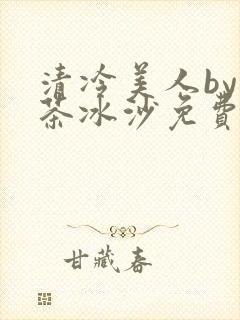 清冷美人by
茶冰沙免費
甘藏春